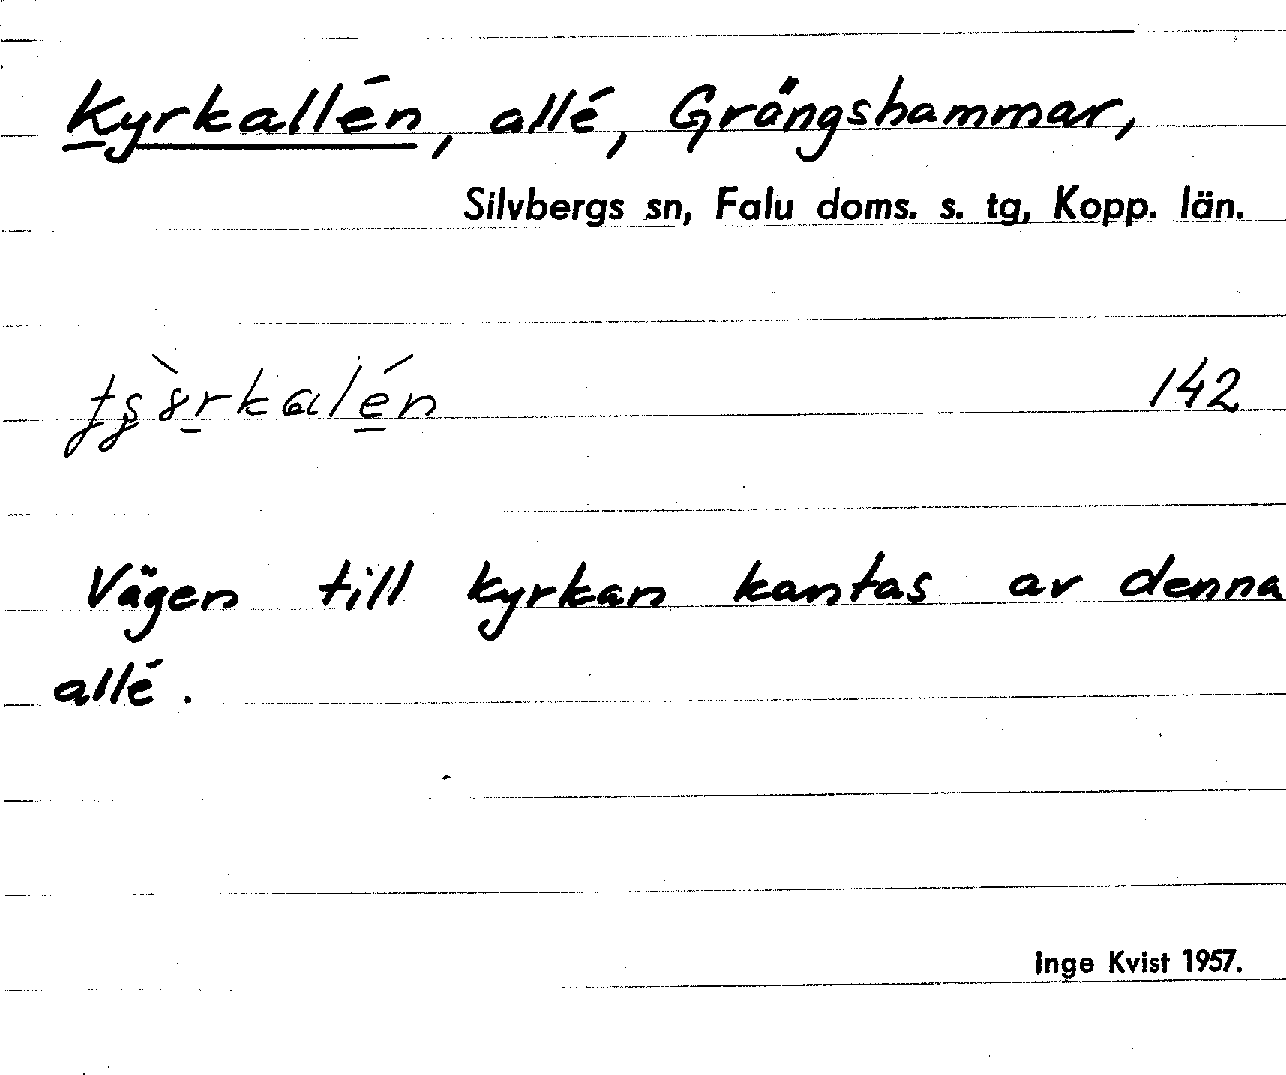 Kyrkallén, allé, Grängshammar,
Silvbergs sn, Falu doms. s. tg, Kopp. län.
142
Vägen till kyrkan kantas av denna
allé.
Inge Kvist 1957.